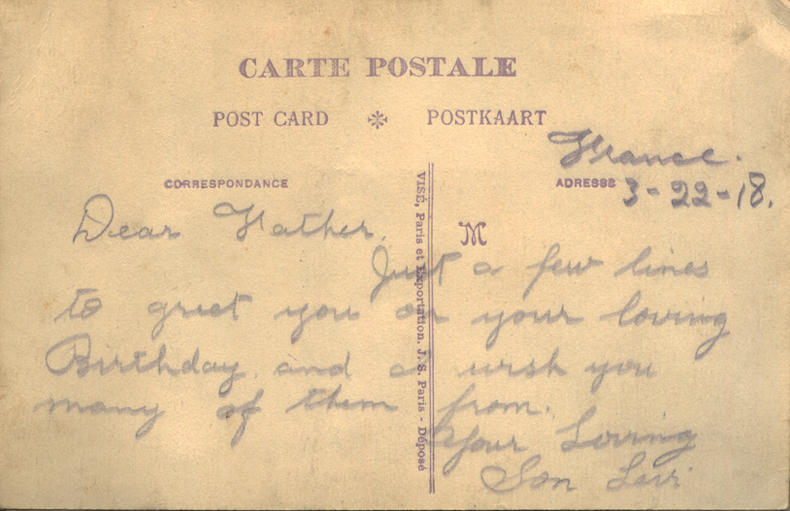 CARTE POSTALE
POST CARD * POSTKAART
France.
CORRESPONDANCE
ADRESSE 3-22-18.
Dear Father.
M
Just a few lines
to greet you on your loving
Birthday. and a wish you
many of them from.
Your Loving
Son Levi
VISÉ, Paris et Exportation. J. S. Paris - Déposé